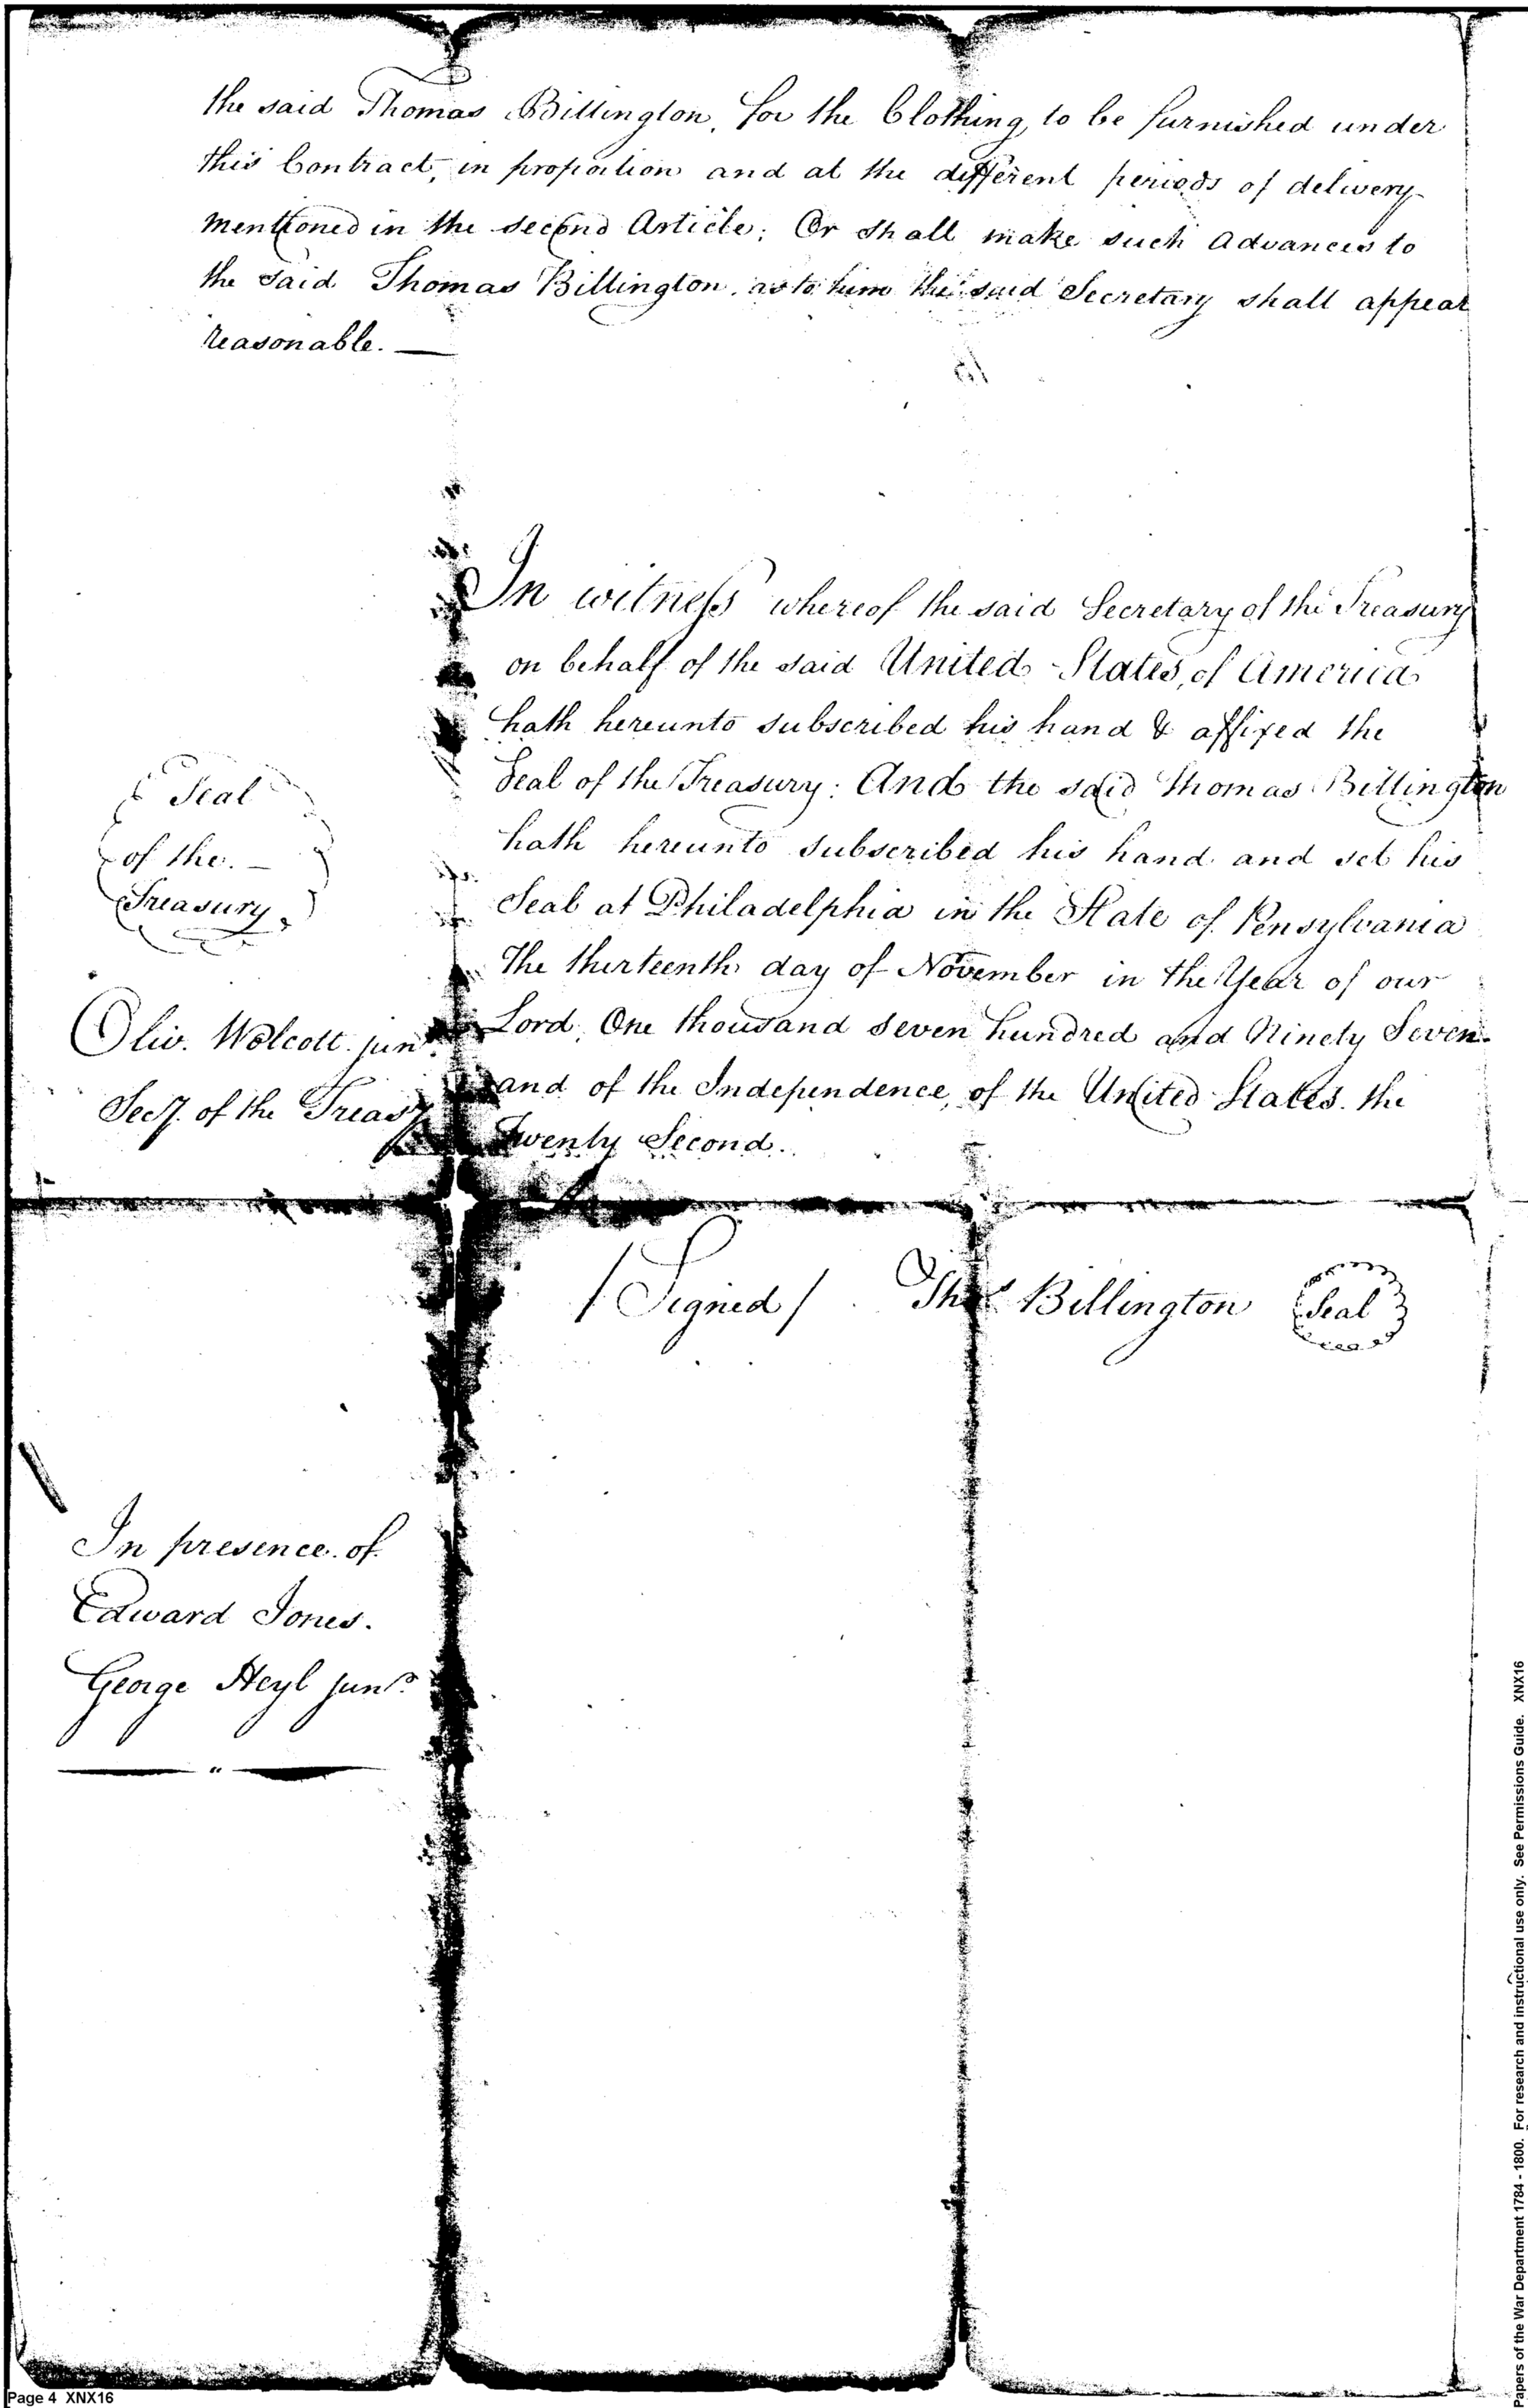 the said Thomas Billington, for the Clothing to be furnished under
this Contract, in proportion and at the different periods of delivery
mentioned in the second Article; Or shall make such advances to
the said Thomas Billington, as to him the said Secretary shall appear
reasonable. —
In witness whereof the said Secretary of the Treasury
on behalf of the said United States, of America
hath hereunto subscribed his hand & affixed the
Seal of the Treasury: And the said Thomas Billington
hath hereunto subscribed his hand and set his
Seal at Philadelphia in the State of Pensylvania
The thirteenth day of November in the Year of our
Lord, One thousand seven hundred and Ninety Seven
and of the Independence, of the United States. the
Twenty Second.
Seal
of the. —
Treasury.
Oliv. Wolcott. junr.
Secy. of the Treasy
/ Signed / Thos Billington Seal
In presence of
Edward Jones.
George Heyl junr.
Page 4 XNX16
Papers of the War Department 1784 - 1800. For research and instructional use only. See Permissions Guide. XNX16